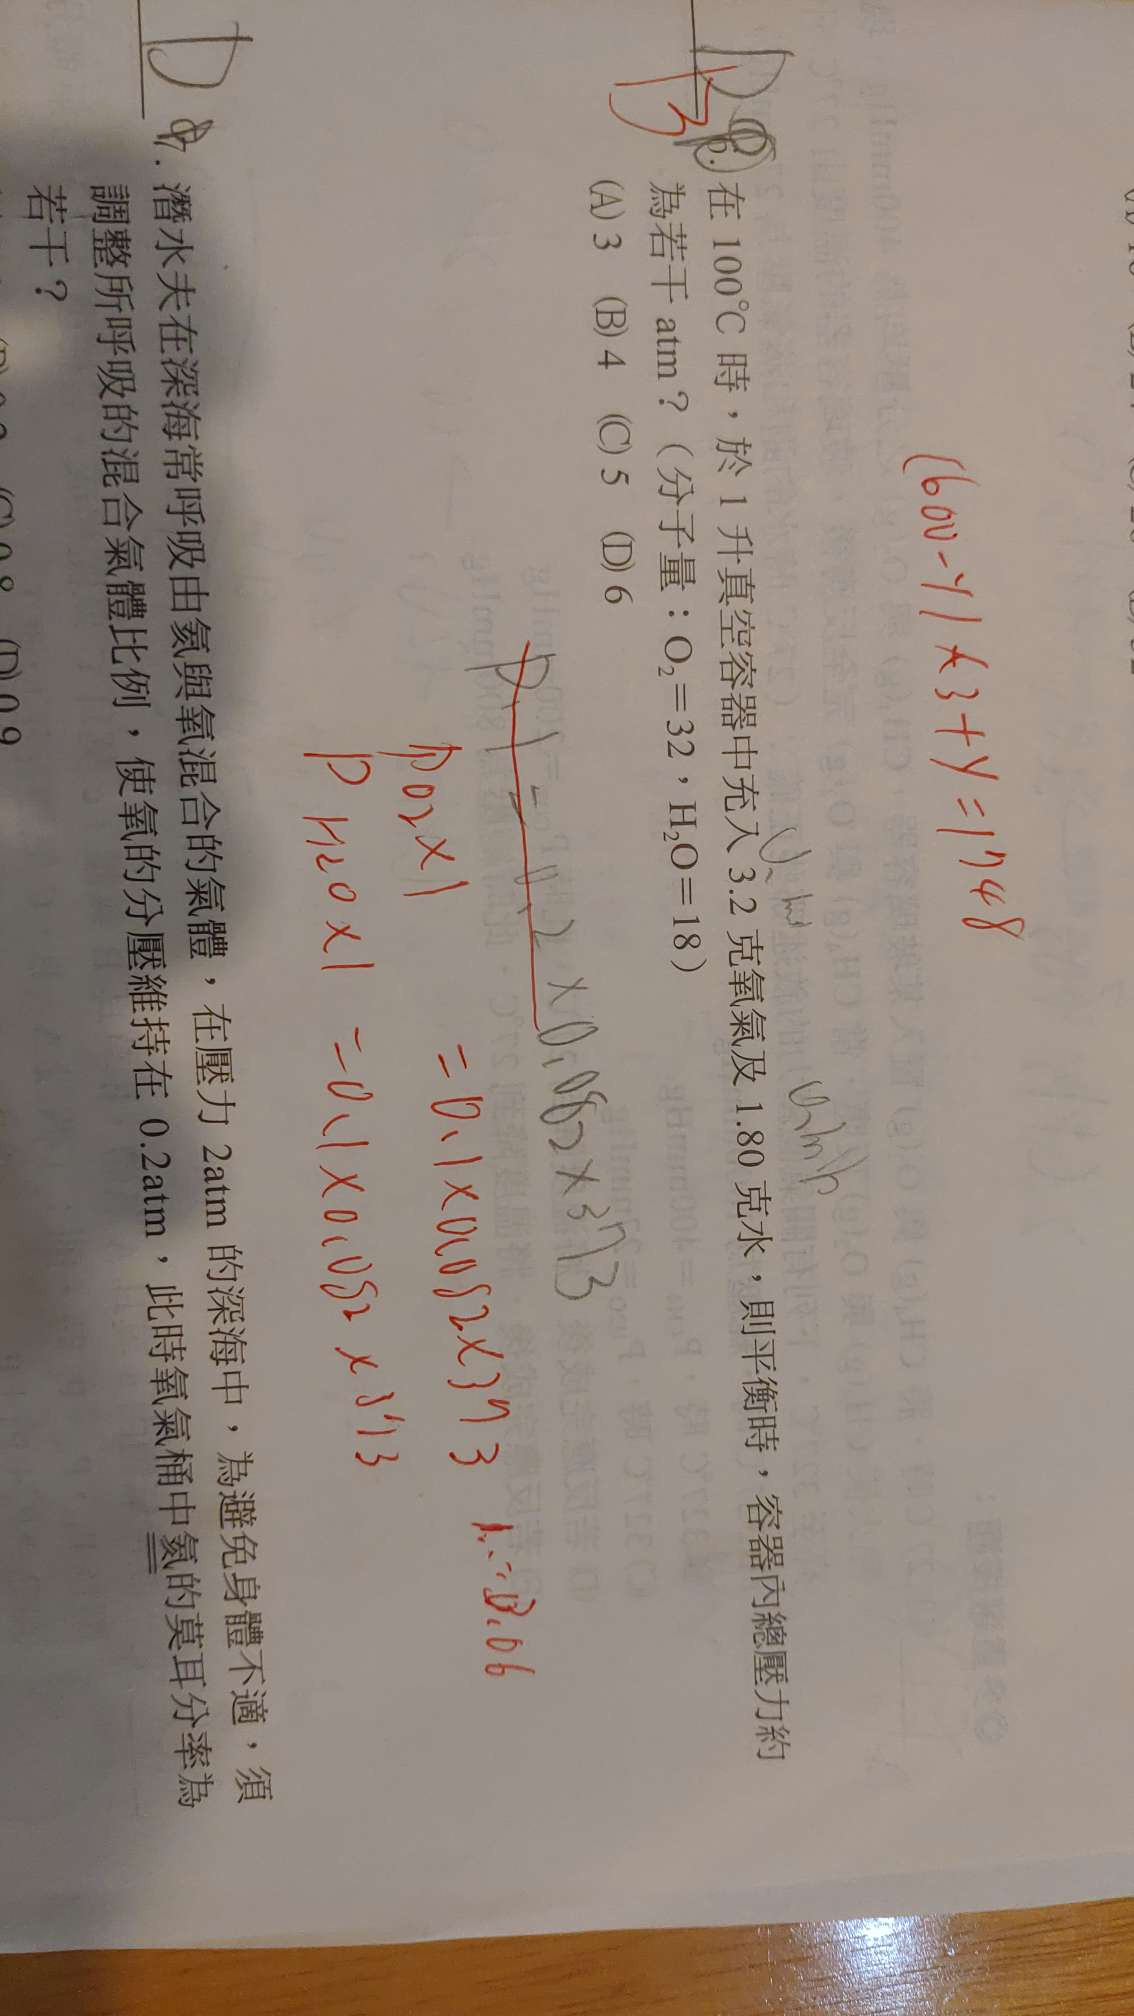 (600-y) x 3 + y = 1748
D
B
6. 在 100℃ 時，於 1 升真空容器中充入 3.2 克氧氣及 1.80 克水，則平衡時，容器內總壓力約
為若干 atm？（分子量：O₂＝32，H₂O＝18）
(A) 3 (B) 4 (C) 5 (D) 6
0.2 × 0.082 × 373
PO2 × 1 = 0.1 × 0.082 × 373
P H2O × 1 = 0.1 × 0.082 × 373
D
7. 潛水夫在深海常呼吸由氦與氧混合的氣體，在壓力 2atm 的深海中，為避免身體不適，須
調整所呼吸的混合氣體比例，使氧的分壓維持在 0.2atm，此時氧氣桶中氦的莫耳分率為
若干？